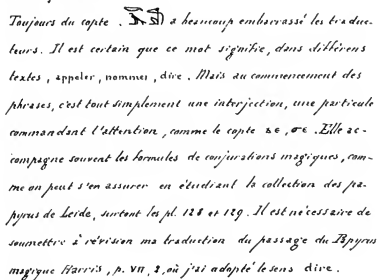 Toujours du copte. a beaucoup embarrassé les traduc-
teurs. Il est certain que ce mot signifie, dans différens
textes, appeler, nommer, dire. Mais au commencement des
phrases, c'est tout simplement une interjection, une particule
commandant l'attention, comme le copte ϫⲉ, ϭⲉ. Elle ac-
compagne souvent les formules de conjurations magiques, com-
me on peut s'en assurer en étudiant la collection des pa-
pyrus de Leide, surtout les pl. 128 et 129. Il est nécessaire de
soumettre à révision ma traduction du passage du Papyrus
magique Harris, p. VII, 2, où j'ai adopté le sens dire.